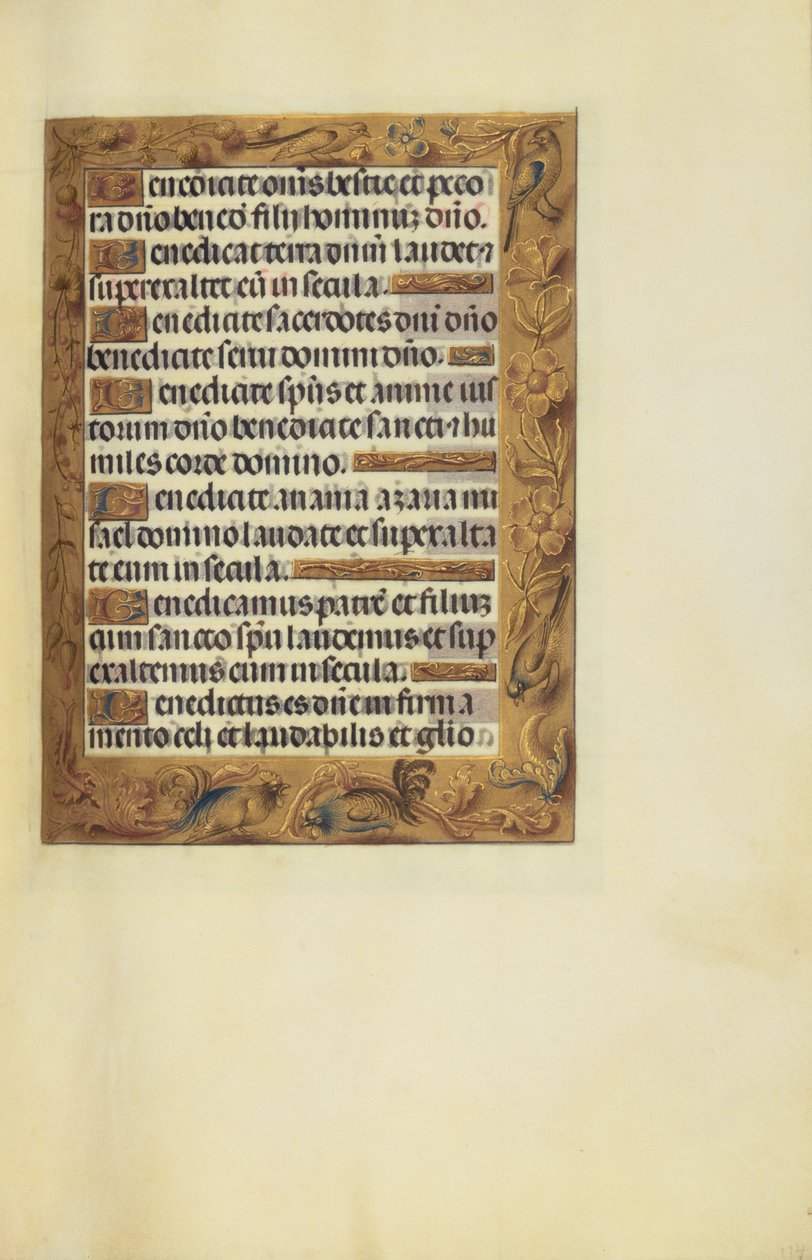 Benedicite om̄s bestie et peco
ra dn̄o bened̄ filij hominuʒ dn̄o.
Benedicat terra dn̄m laudet ⁊
superexaltet eū in secula.
Benedicite sacerdotes dn̄i dn̄o
benedicite serui domini dn̄o.
Benedicite sp̄us et anime ius
torum dn̄o benedicite sancti ⁊ hu
miles corde domino.
Benedicite anania azaria mi
sael domino laudate et superalta
te eum in secula.
Benedicamus patrē et filiuʒ
cum sancto sp̄u laudemus et sup
exaltemus eum in secula.
Benedictus es dn̄e in firma
mento celi et laudabilis et gl̄io